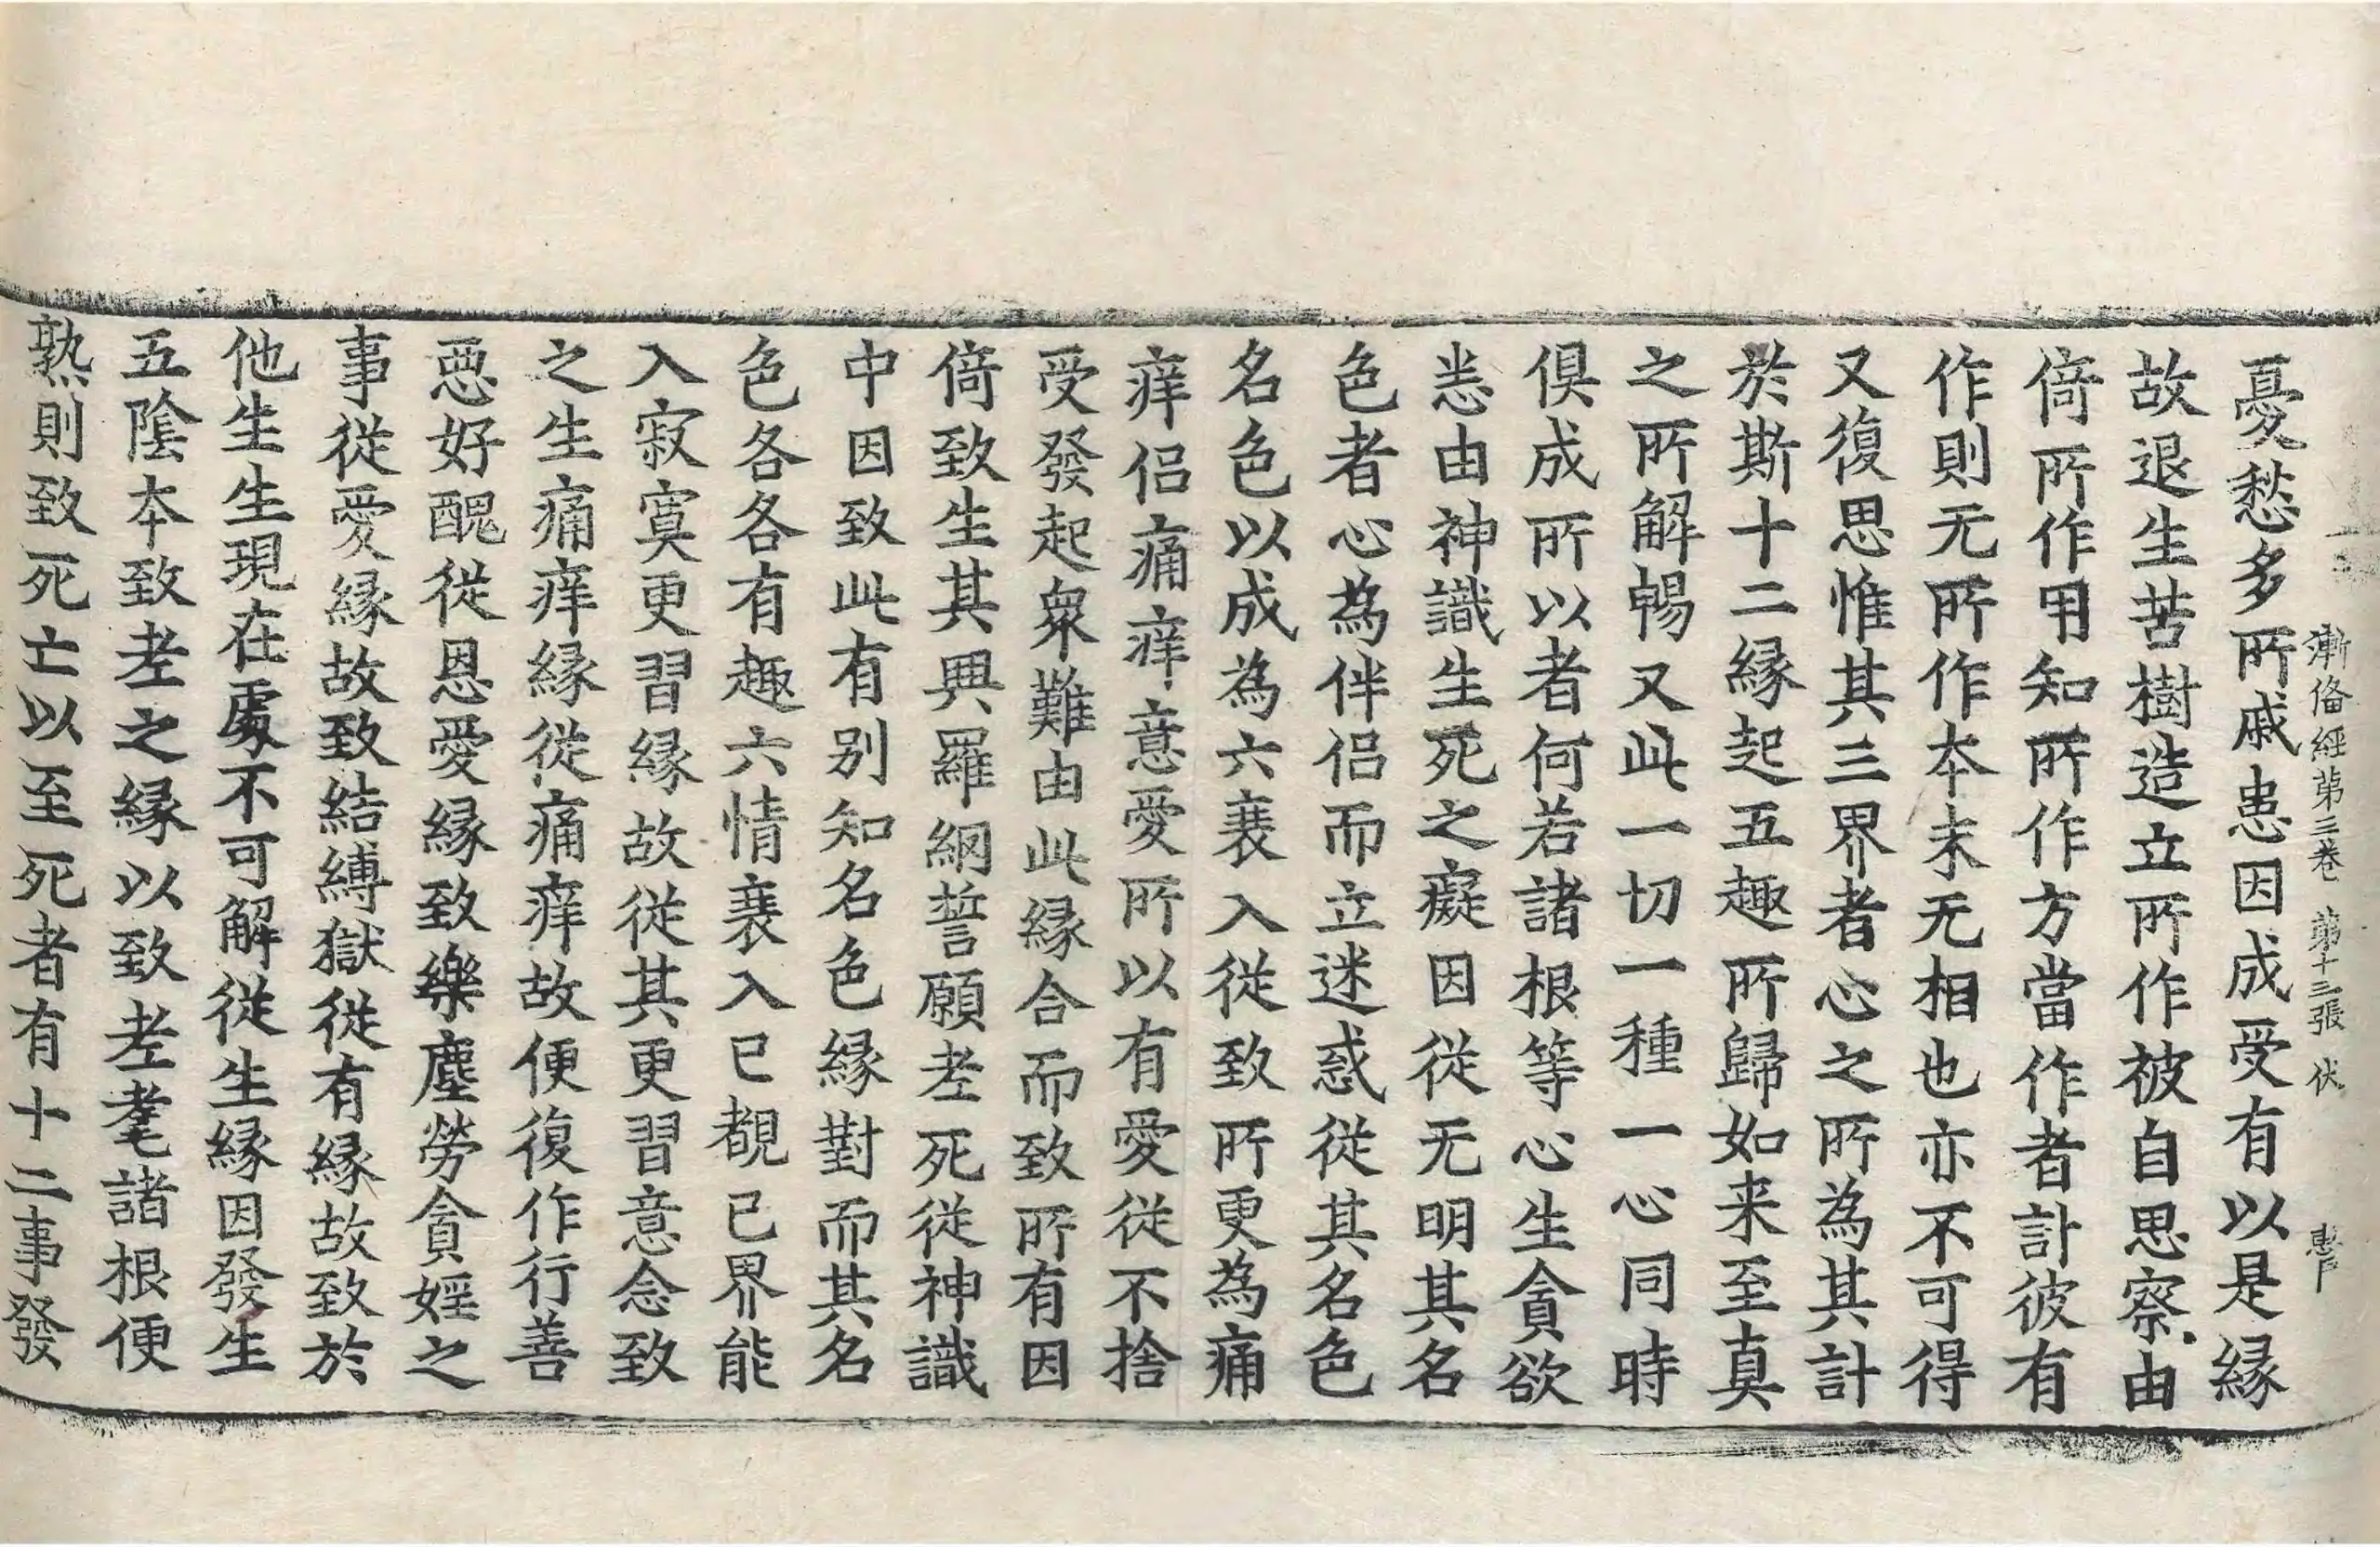 漸俻經苐三卷 苐十三張 伏
憂愁多所戚患因成受有以是縁
故退生苦樹造立所作被自思察由
倚所作用知所作方當作者計彼有
作則无所作本末无相也亦不可得
又復思惟其三界者心之所為其計
於斯十二縁起五趣所歸如来至真
之所解暢又此一切一種一心同時
俱成所以者何若諸根等心生貪欲
恙由神識生死之癡因従无明其名
色者心為伴侣而立迷惑従其名色
名色以成為六衰入従致所更為痛
痒侣痛痒意愛所以有愛従不捨
受發起衆難由此縁合而致所有因
倚致生其興羅網誓願老死従神識
中因致此有别知名色縁對而其名
色各各有趣六情衰入已覩已界能
入寂寞更習縁故従其更習意念致
之生痛痒縁従痛痒故便復作行善
惡好醜従恩愛縁致樂塵勞貪婬之
事従愛縁故致結縛獄従有縁故致於
他生生現在處不可解従生縁因發生
五陰本致老之縁以致老耄諸根便
熟則致死亡以至死者有十二事發